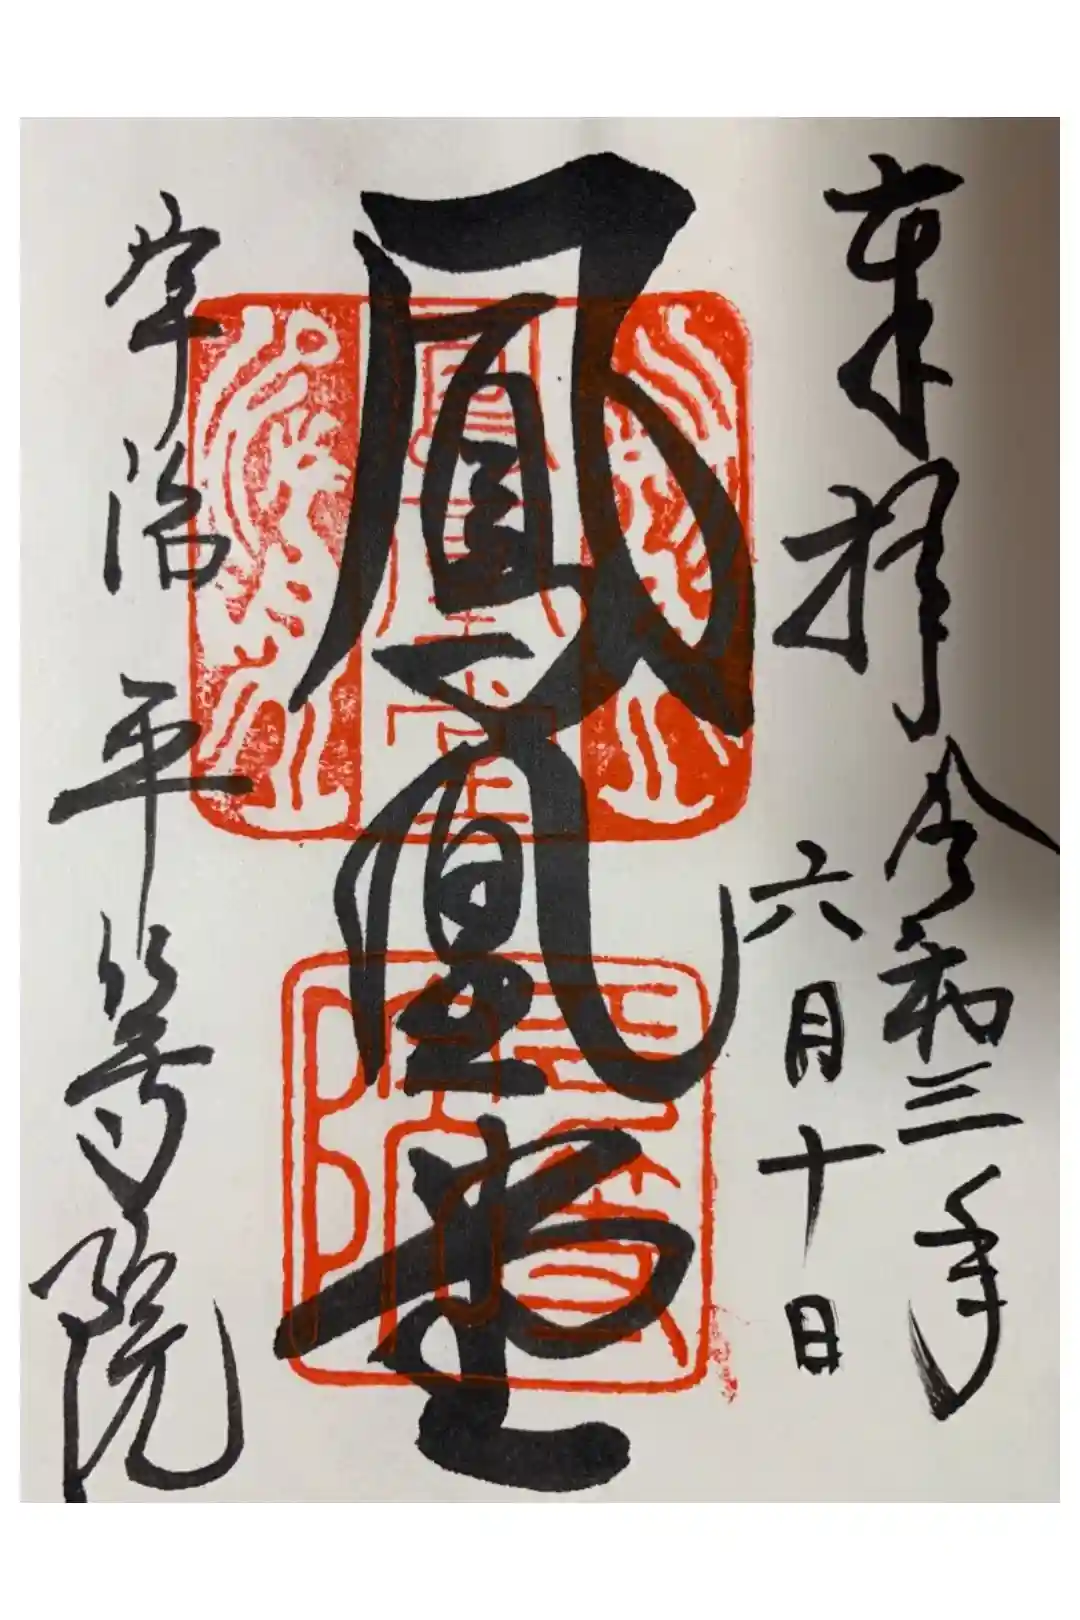 奉拝
令和三年
六月十日
鳳凰堂
宇治 平等院